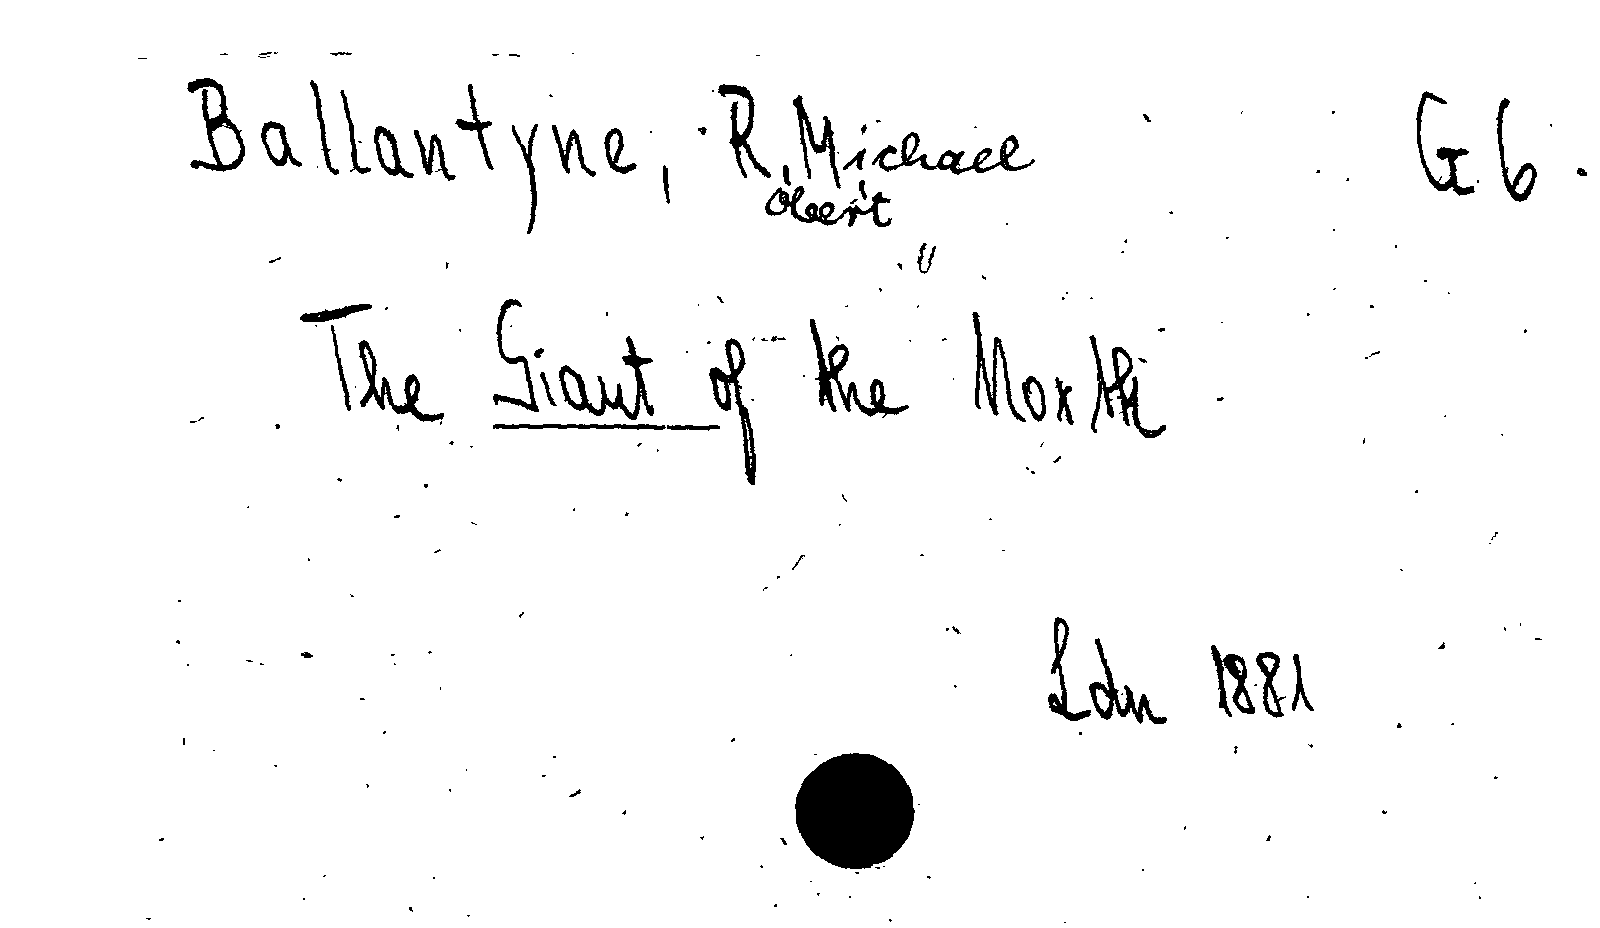 Ballantyne, R. Michael G 6.
obert
The Giant of the North
Ldn 1881